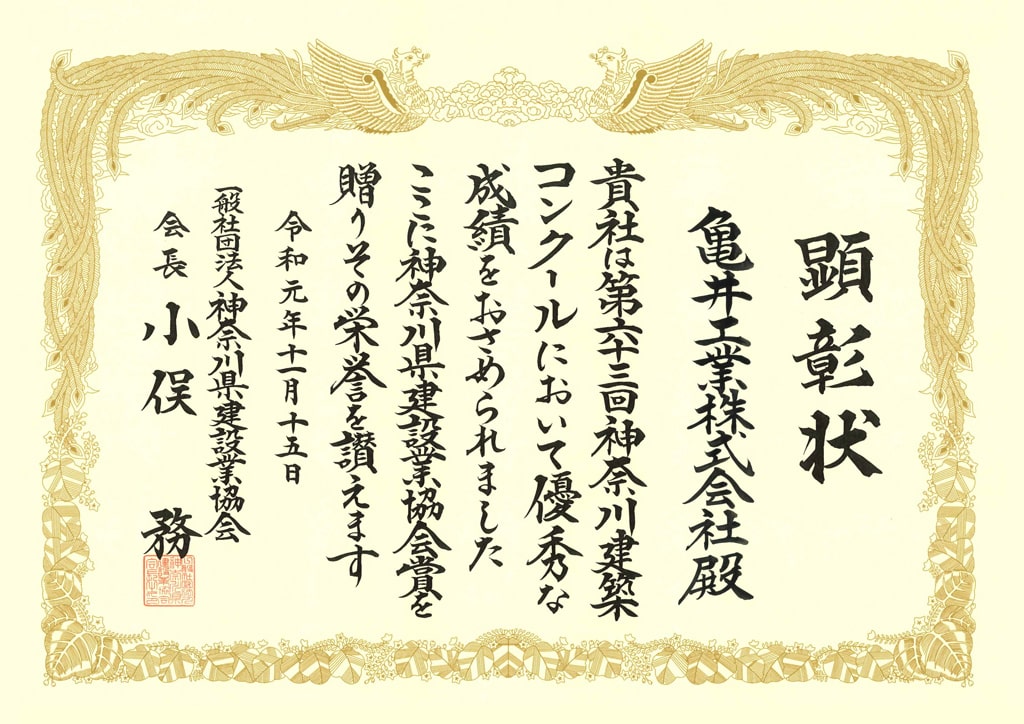 顕彰状
亀井工業株式会社殿
貴社は第六十三回神奈川建築
コンクールにおいて優秀な
成績をおさめられました
ここに神奈川県建設業協会賞を
贈りその栄誉を讃えます
令和元年十一月十五日
一般社団法人神奈川県建設業協会
会長 小俣 務